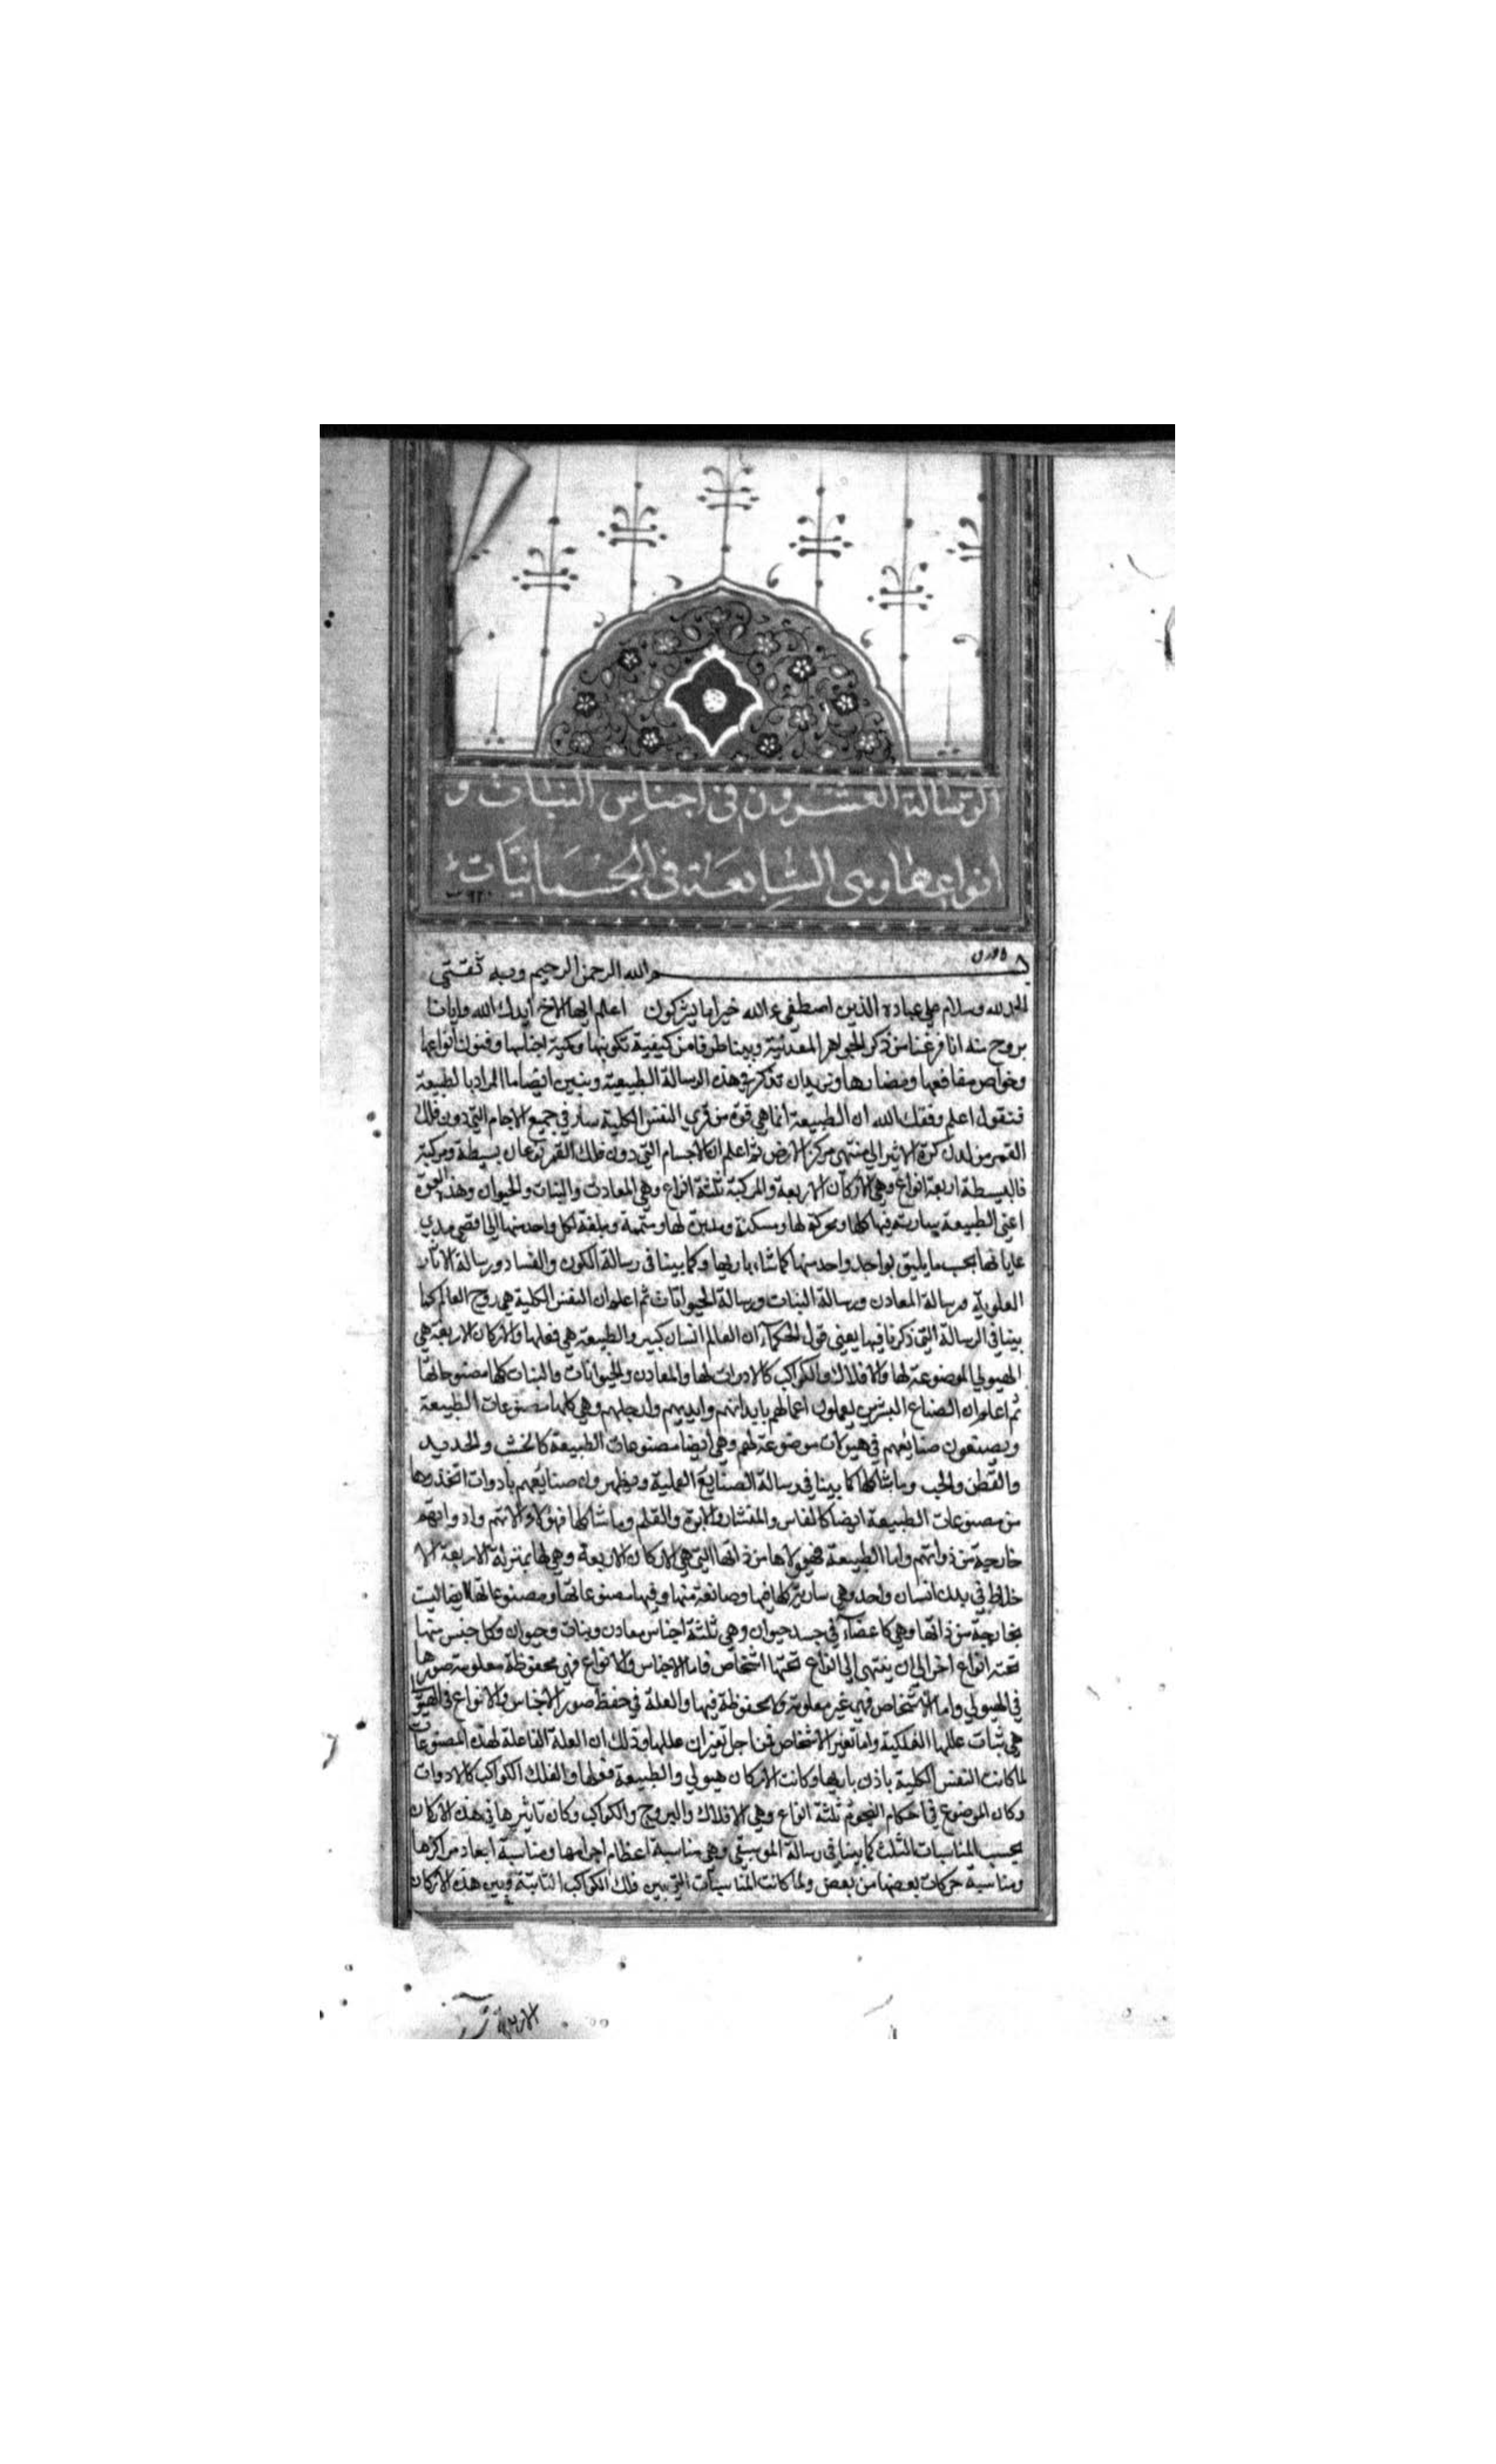 الرسالة العشرون في اجناس النبات و
انواعها وهى السابعة في الجسمانيات
بسم الله الرحمن الرحيم وبه ثقتي
الحمد لله وسلام على عباده الذين اصطفى ءالله خير اما يشركون اعلم ايها الاخ ايدك الله واياك
بروح منه انا فرغنا من ذكر الجواهر المعدنية وبينا طرفا من كيفية تكوينها وكمية اجناسها وفنون انواعها
وخواص منافعها ومضارها ونريد ان نذكر في هذه الرسالة الطبيعة ونبين ايضا ما المراد بالطبيعة
فنقول اعلم وفقك الله ان الطبيعة انما هي قوة من قوي النفس الكلية سار في جميع الاجسام التي دون فلك
القمر من لدن كرة الاثير الي منتهى مركز الارض ثم اعلم ان الاجسام التي دون فلك القمر نوعان بسيطة ومركبة
فالبسيطة اربعة انواع وهي الاركان الاربعة والمركبة ثلثة انواع وهي المعادن والنبات والحيوان وهذه القوة
اعني الطبيعة سارية فيها كلها ومحركة لها ومسكنة ومدبرة لها ومتممة ومبلغة لكل واحد منها الي اقصي مدي
غاياتها بحسب ما يليق بواحد واحد منها كما شاء باريها وكما بينا في رسالة الكون والفساد ورسالة الاثار
العلوية ورسالة المعادن ورسالة النبات ورسالة الحيوانات ثم اعلم ان النفس الكلية هي روح العالم كما
بينا في الرسالة التي ذكرنا فيها يعني قول الحكماء ان العالم انسان كبير والطبيعة هي فعلها والاركان الاربعة هي
الهيولي الموضوعة لها والافلاك والكواكب كالادوات لها والمعادن والحيوانات والنبات كلها مصنوعاتها
ثم اعلم ان الصناع البشرين يعملون اعمالهم بابدانهم وايديهم وارجلهم وهي كلها مصنوعات الطبيعة
ويصنعون صنايعهم في هيولات موضوعة لهم وهي ايضا مصنوعات الطبيعة كالخشب والحديد
والقطن والحب وما شاكلها كما بينا في رسالة الصنايع العملية ويظهرون صنايعهم بادوات اتخذوها
من مصنوعات الطبيعة ايضا كالفاس والمنشار والابرة والقلم وما شاكلها فهؤلاء والاتهم وادواتهم
خارجية من ذواتهم واما الطبيعة فهيولاها من ذاتها التي هي الاركان الاربعة وهي لها بمنزلة الاربعة الا
خلاط في بدن انسان واحد وهي سارية كلها فيها وصانعة منها وفيها مصنوعاتها ومصنوعاتها ايضا ليست
بخارجة من ذاتها وهي كاعضاء في جسد حيوان وهي ثلثة اجناس معادن ونبات وحيوان وكل جنس منها
تحته انواع اخر الي ان ينتهى الي انواع تحتها اشخاص فاما الاجناس والانواع فهي محفوظة معلومة صورها
في الهيولي واما الاشخاص فهي غير معلومة ولا محفوظة فيها والعلة في حفظ صور الاجناس والانواع في الهيولي
هي ثبات عللها الفلكية واما تغير الاشخاص فمن اجل تغيرات عللها وذلك ان العلة الفاعلة لهذه المصنوعات
لما كانت النفس الكلية باذن باريها وكانت الاركان هيولي والطبيعة فعلها والفلك الكواكب كالادوات
وكان الموضوع في احكام النجوم ثلثة انواع وهي الافلاك والبروج والكواكب وكان تاثيرها في هذه الاركان
بحسب المناسبات الثلث كما بينا في رسالة الموسيقي وهي مناسبة اعظام اجرامها ومناسبة ابعاد مراكزها
ومناسبة حركات بعضها من بعض ولما كانت المناسبات التي بين فلك الكواكب الثابتة وبين هذه الاركان